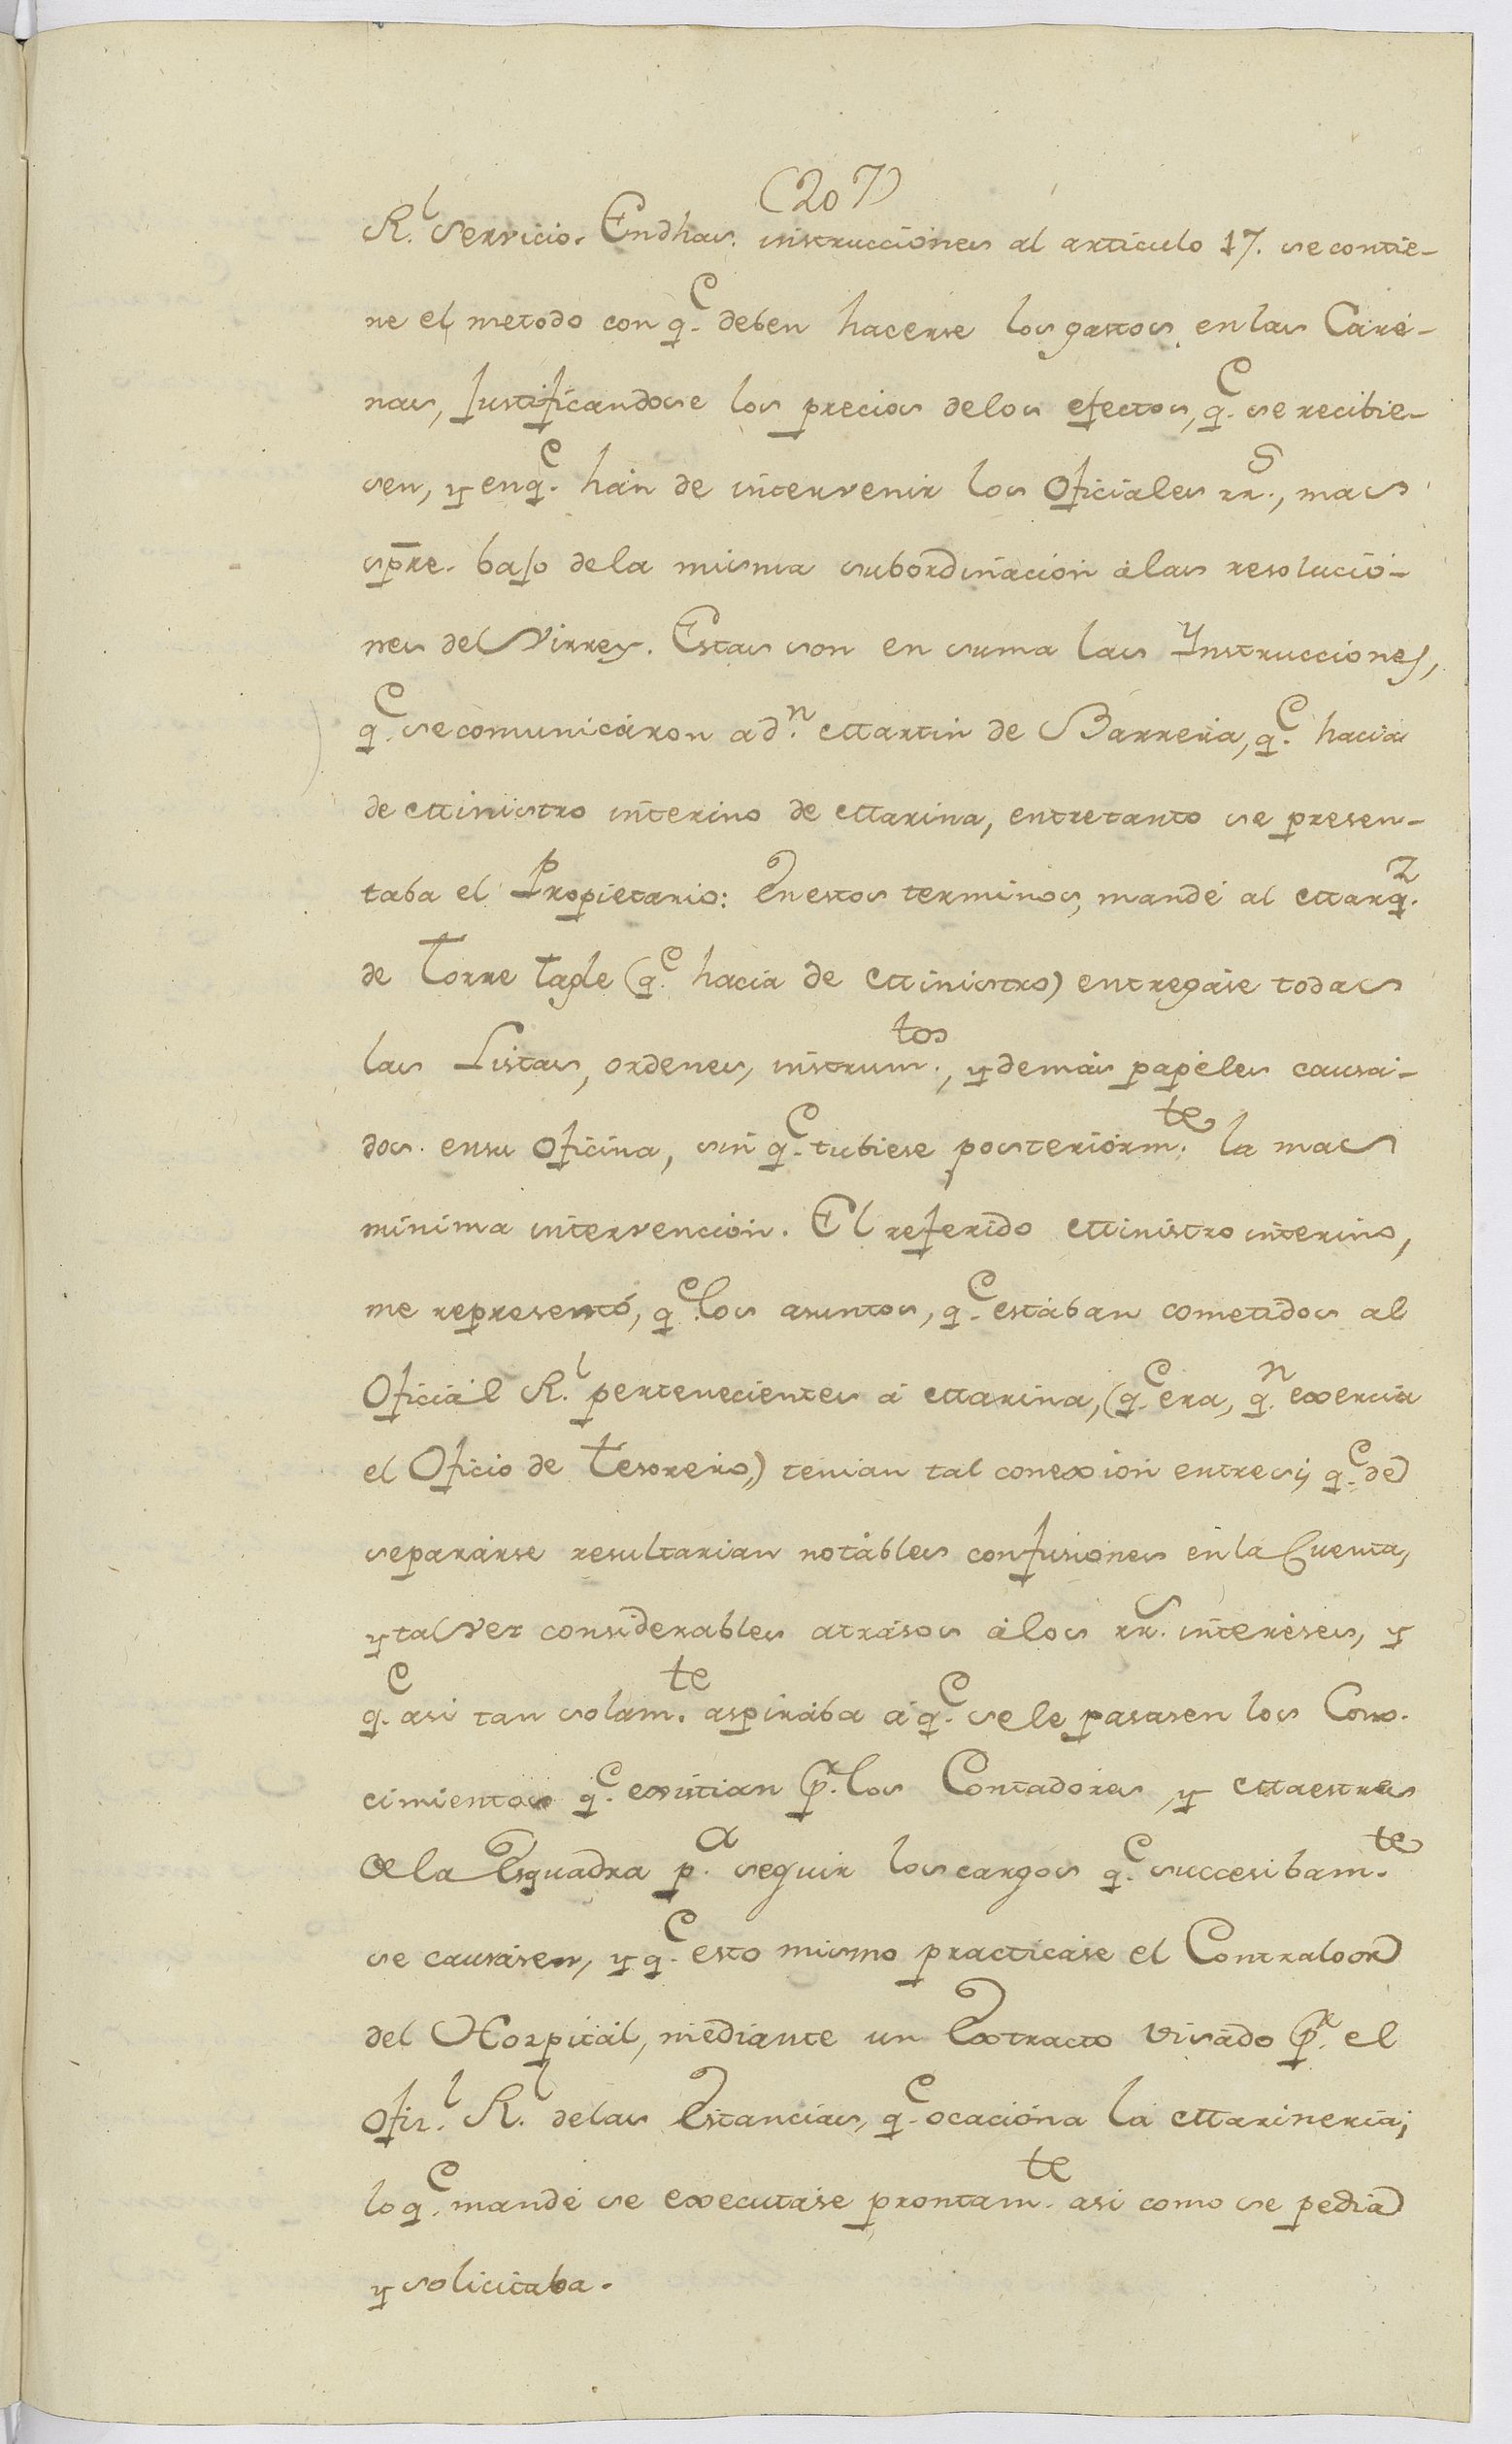 (207)
R.l Servicio. En dhas. instrucciones al articulo 17. se contie-
ne el metodo con q.e deben hacerse los gastos en las Care-
nas, Justificandose los precios de los efectos, q.e se recibie-
sen, y en q.e han de intervenir los Oficiales rr.s, mas
spre. bajo de la misma subordinacion á las resolucio-
nes del Virrey. Estas son en suma las Ynstrucciones,
q.e se comunicáron a d.n Martin de Barreria, q.e hacia
de Ministro interino de Marina, entretanto se presen-
taba el Propietario: En estos terminos, mandé al Marq.z
de Torre Tagle (q.e hacia de Ministro) entregáse todas
las Listas, ordenes, instrum.tos, y demás papéles causa-
dos en su Oficina, sin q.e tubiese posteriorm.te la mas
minima intervencion. El referido Ministro interino,
me representó, q.e los asuntos, q.e estában cometidos al
Oficial R.l pertenecientes á Marina, (q.e era, q.n exercia
el Oficio de Tesorero,) tenian tal conexion entre si, q.e de
separárse resultarian notábles confusiones en la Cuenta,
y tal vez considerables atrásos á los rr.s interéses, y
q.e asi tan solam.te aspirába á q.e se le pasasen los Cono-
cimientos q.e existian p.r los Contadores, y Maestres
de la Esquadra p.a seguir los cargos q.e succesibam.te
se causásen, y q.e esto mismo practicáse el Contraloor
del Hospitál, mediante un Extracto visádo p.r el
Ofiz.l R.l de las Estancias, q.e ocacióna la Marineria;
lo q.e mandé se executáse prontam.te asi como se pedia
y solicitaba.